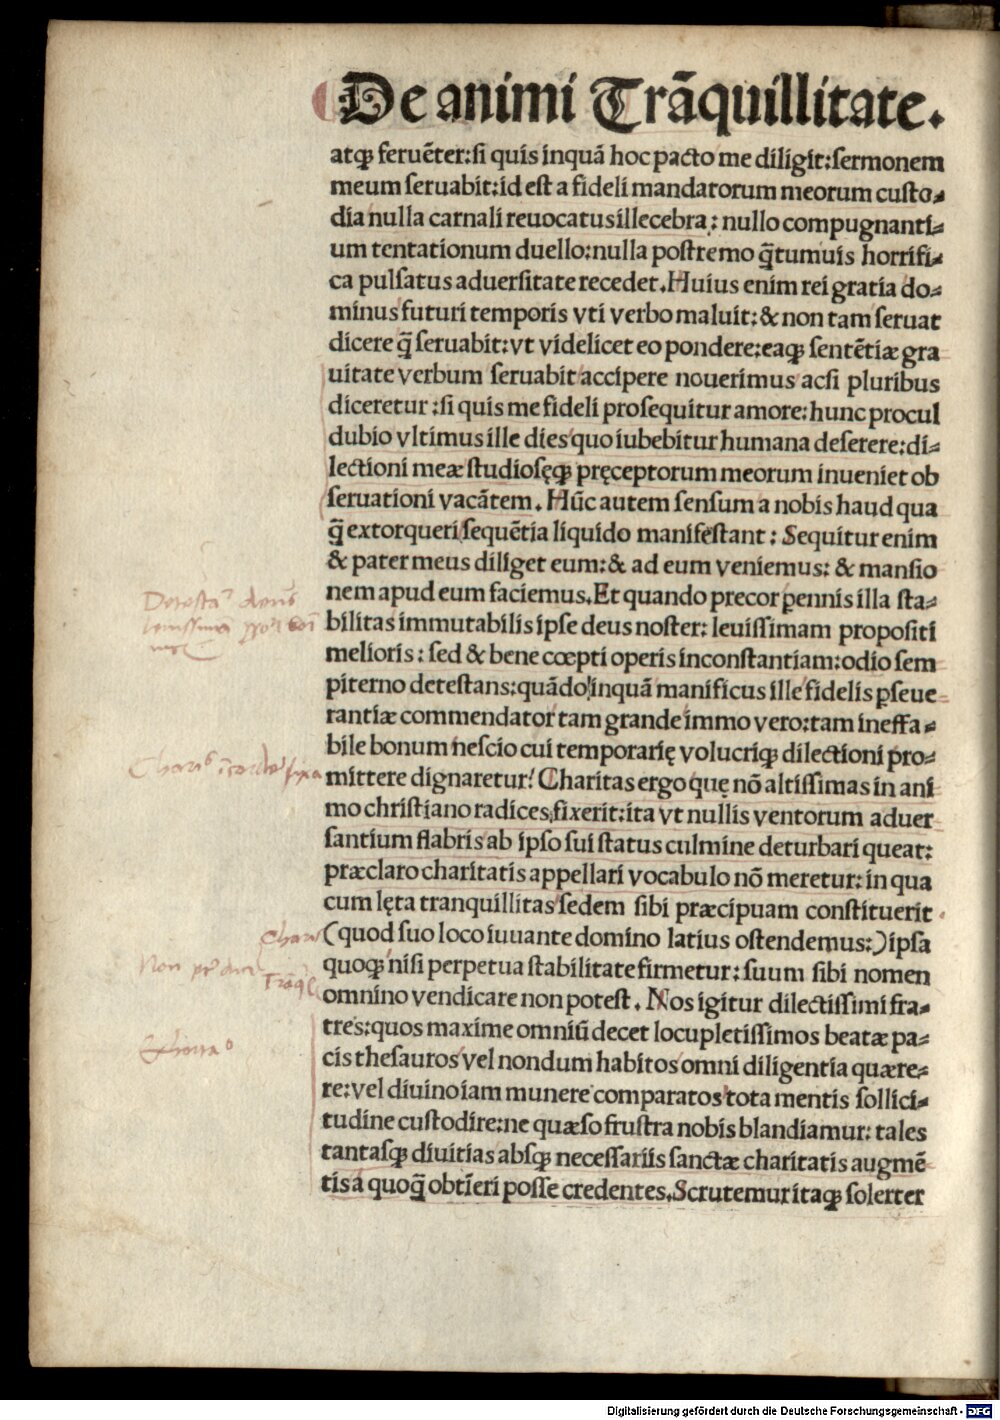 De animi Trãquillitate.
atqꝫ feruẽter:ſi quis inquã hoc pacto me diligit:ſermonem
meum ſeruabit:id eſt a fideli mandatorum meorum cuſto⸗
dia nulla carnali reuocatus illecebra: nullo compugnanti⸗
um tentationum duello:nulla poſtremo q̃tumuis horrifi⸗
ca pulſatus aduerſitate recedet.Huius enim rei gratia do⸗
minus futuri temporis vti verbo maluit:& non tam ſeruat
dicere q̃ ſeruabit:vt videlicet eo pondere:eaqꝫ ſentẽtiæ gra
uitate verbum ſeruabit accipere nouerimus acſi pluribus
diceretur:ſi quis me fideli proſequitur amore:hunc procul
dubio vltimus ille dies quo iubebitur humana deſerere:di⸗
lectioni meæ ſtudioſęqꝫ pręceptorum meorum inueniet ob
ſeruationi vacãtem. Hũc autem ſenſum a nobis haud qua
q̃ extorqueri ſequẽtia liquido manifeſtant: Sequitur enim
& pater meus diliget eum:& ad eum veniemus: & manſio
nem apud eum faciemus.Et quando precor ꝑennis illa ſta⸗
bilitas immutabilis ipſe deus noſter: leuiſſimam propoſiti
melioris: ſed & bene cœpti operis inconſtantiam:odio ſem
piterno deteſtans:quãdo inquã manificus ille fidelis ꝑſeue
rantiæ commendator tam grande immo vero:tam ineffa⸗
bile bonum neſcio cui temporarię volucriqꝫ dilectioni pro⸗
mittere dignaretur? Charitas ergo quę nõ altiſſimas in ani
mo chriſtiano radices fixerit:ita vt nullis ventorum aduer
ſantium flabris ab ipſo ſui ſtatus culmine deturbari queat:
præclaro charitatis appellari vocabulo nõ meretur: in qua
cum lęta tranquillitas ſedem ſibi præcipuam conſtituerit
(quod ſuo loco iuuante domino latius oſtendemus:) ipſa
quoqꝫ niſi perpetua ſtabilitate firmetur: ſuum ſibi nomen
omnino vendicare non poteſt. Nos igitur dilectiſſimi fra⸗
tres:quos maxime omniũ decet locupletiſſimos beatæ pa⸗
cis theſauros vel nondum habitos omni diligentia quære⸗
re:vel diuino iam munere comparatos tota mentis ſollici⸗
tudine cuſtodire:ne quæſo fruſtra nobis blandiamur: tales
tantaſqꝫ diuitias abſqꝫ neceſſariis ſanctæ charitatis augmẽ
tis a quoq̃ obtineri poſſe credentes.Scrutemur itaqꝫ ſolerter
Digitalisierung gefördert durch die Deutsche Forschungsgemeinschaft - DFG